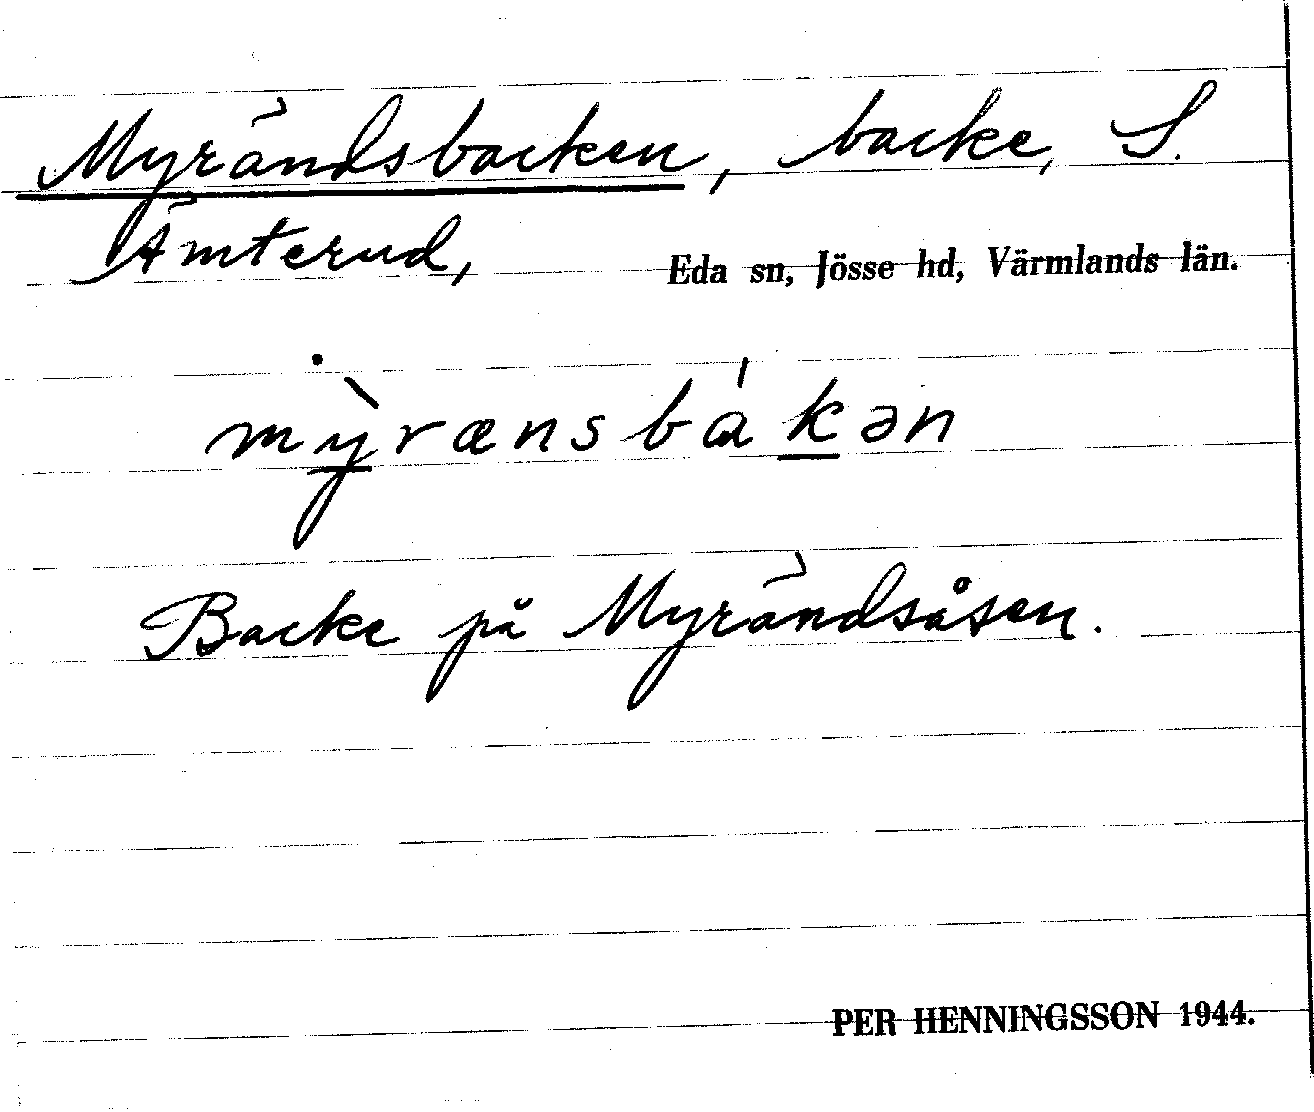 Myrändsbacken, backe, S.
Ämterud, Eda sn, Jösse hd, Värmlands län.
mỳrænsbákən
Backe på Myrändsåsen.
PER HENNINGSSON 1944.